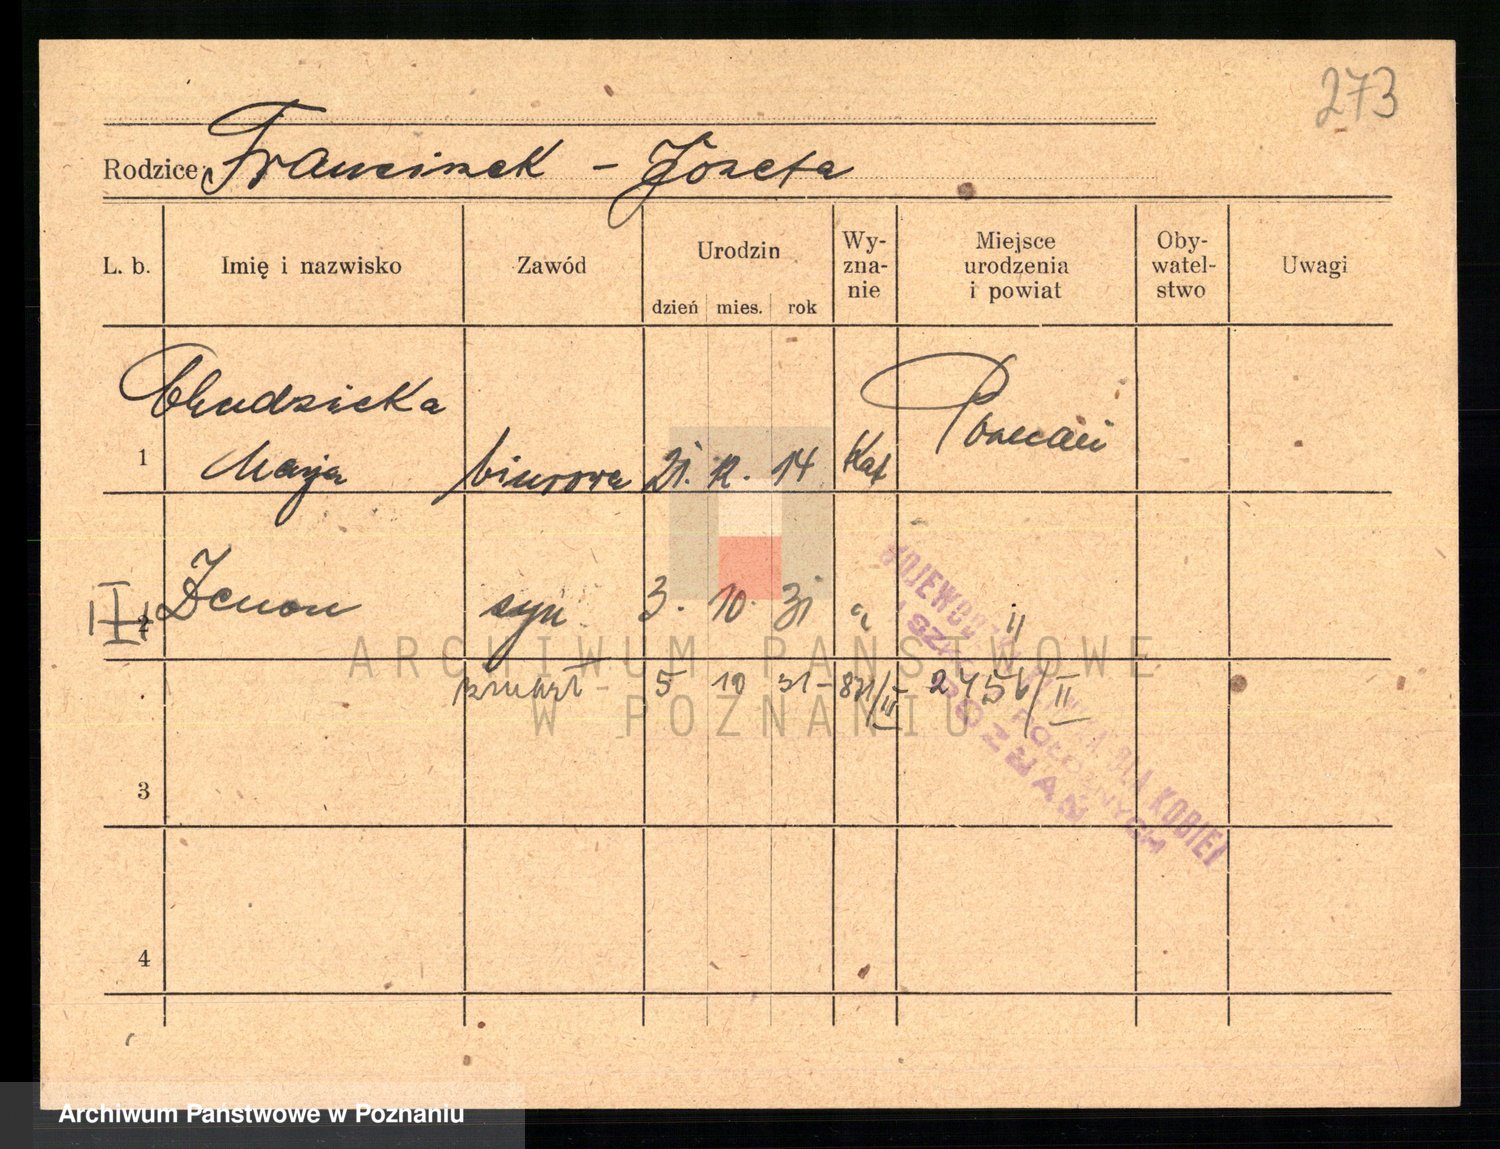 273
Rodzice: Franciszek - Józefa
L. b. Imię i nazwisko Zawód Urodzin dzień mies. rok Wy-zna-nie Miejsce urodzenia i powiat Oby-watel-stwo Uwagi
Chudzicka
1 Marja biurowa 21. 12. 14 Kat Poznań
2 Zenon syn 3. 10. 31 " "
zmarł - 5 10 31 - 871/III 2456/II
WOJEWÓDZKA KLINIKA DLA KOBIET
I SZKOŁA POŁOŻNYCH
POZNAŃ
3
4
ARCHIWUM PAŃSTWOWE
W POZNANIU
Archiwum Państwowe w Poznaniu